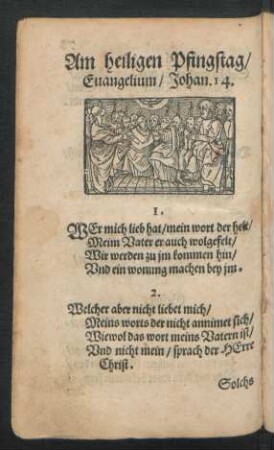 Am heiligen Pfingstag/
Euangelium/ Johan. 14.
1.
WEr mich lieb hat/ mein wort der helt/
Meim Vater er auch wolgefelt/
Wir werden zu jm kommen hin/
Vnd ein wonung machen bey jm.
2.
Welcher aber nicht liebet mich/
Meins worts der nicht annimet sich/
Wiewol das wort meins Vatern ist/
Vnd nicht mein/ sprach der HErre
Christ.
Solchs